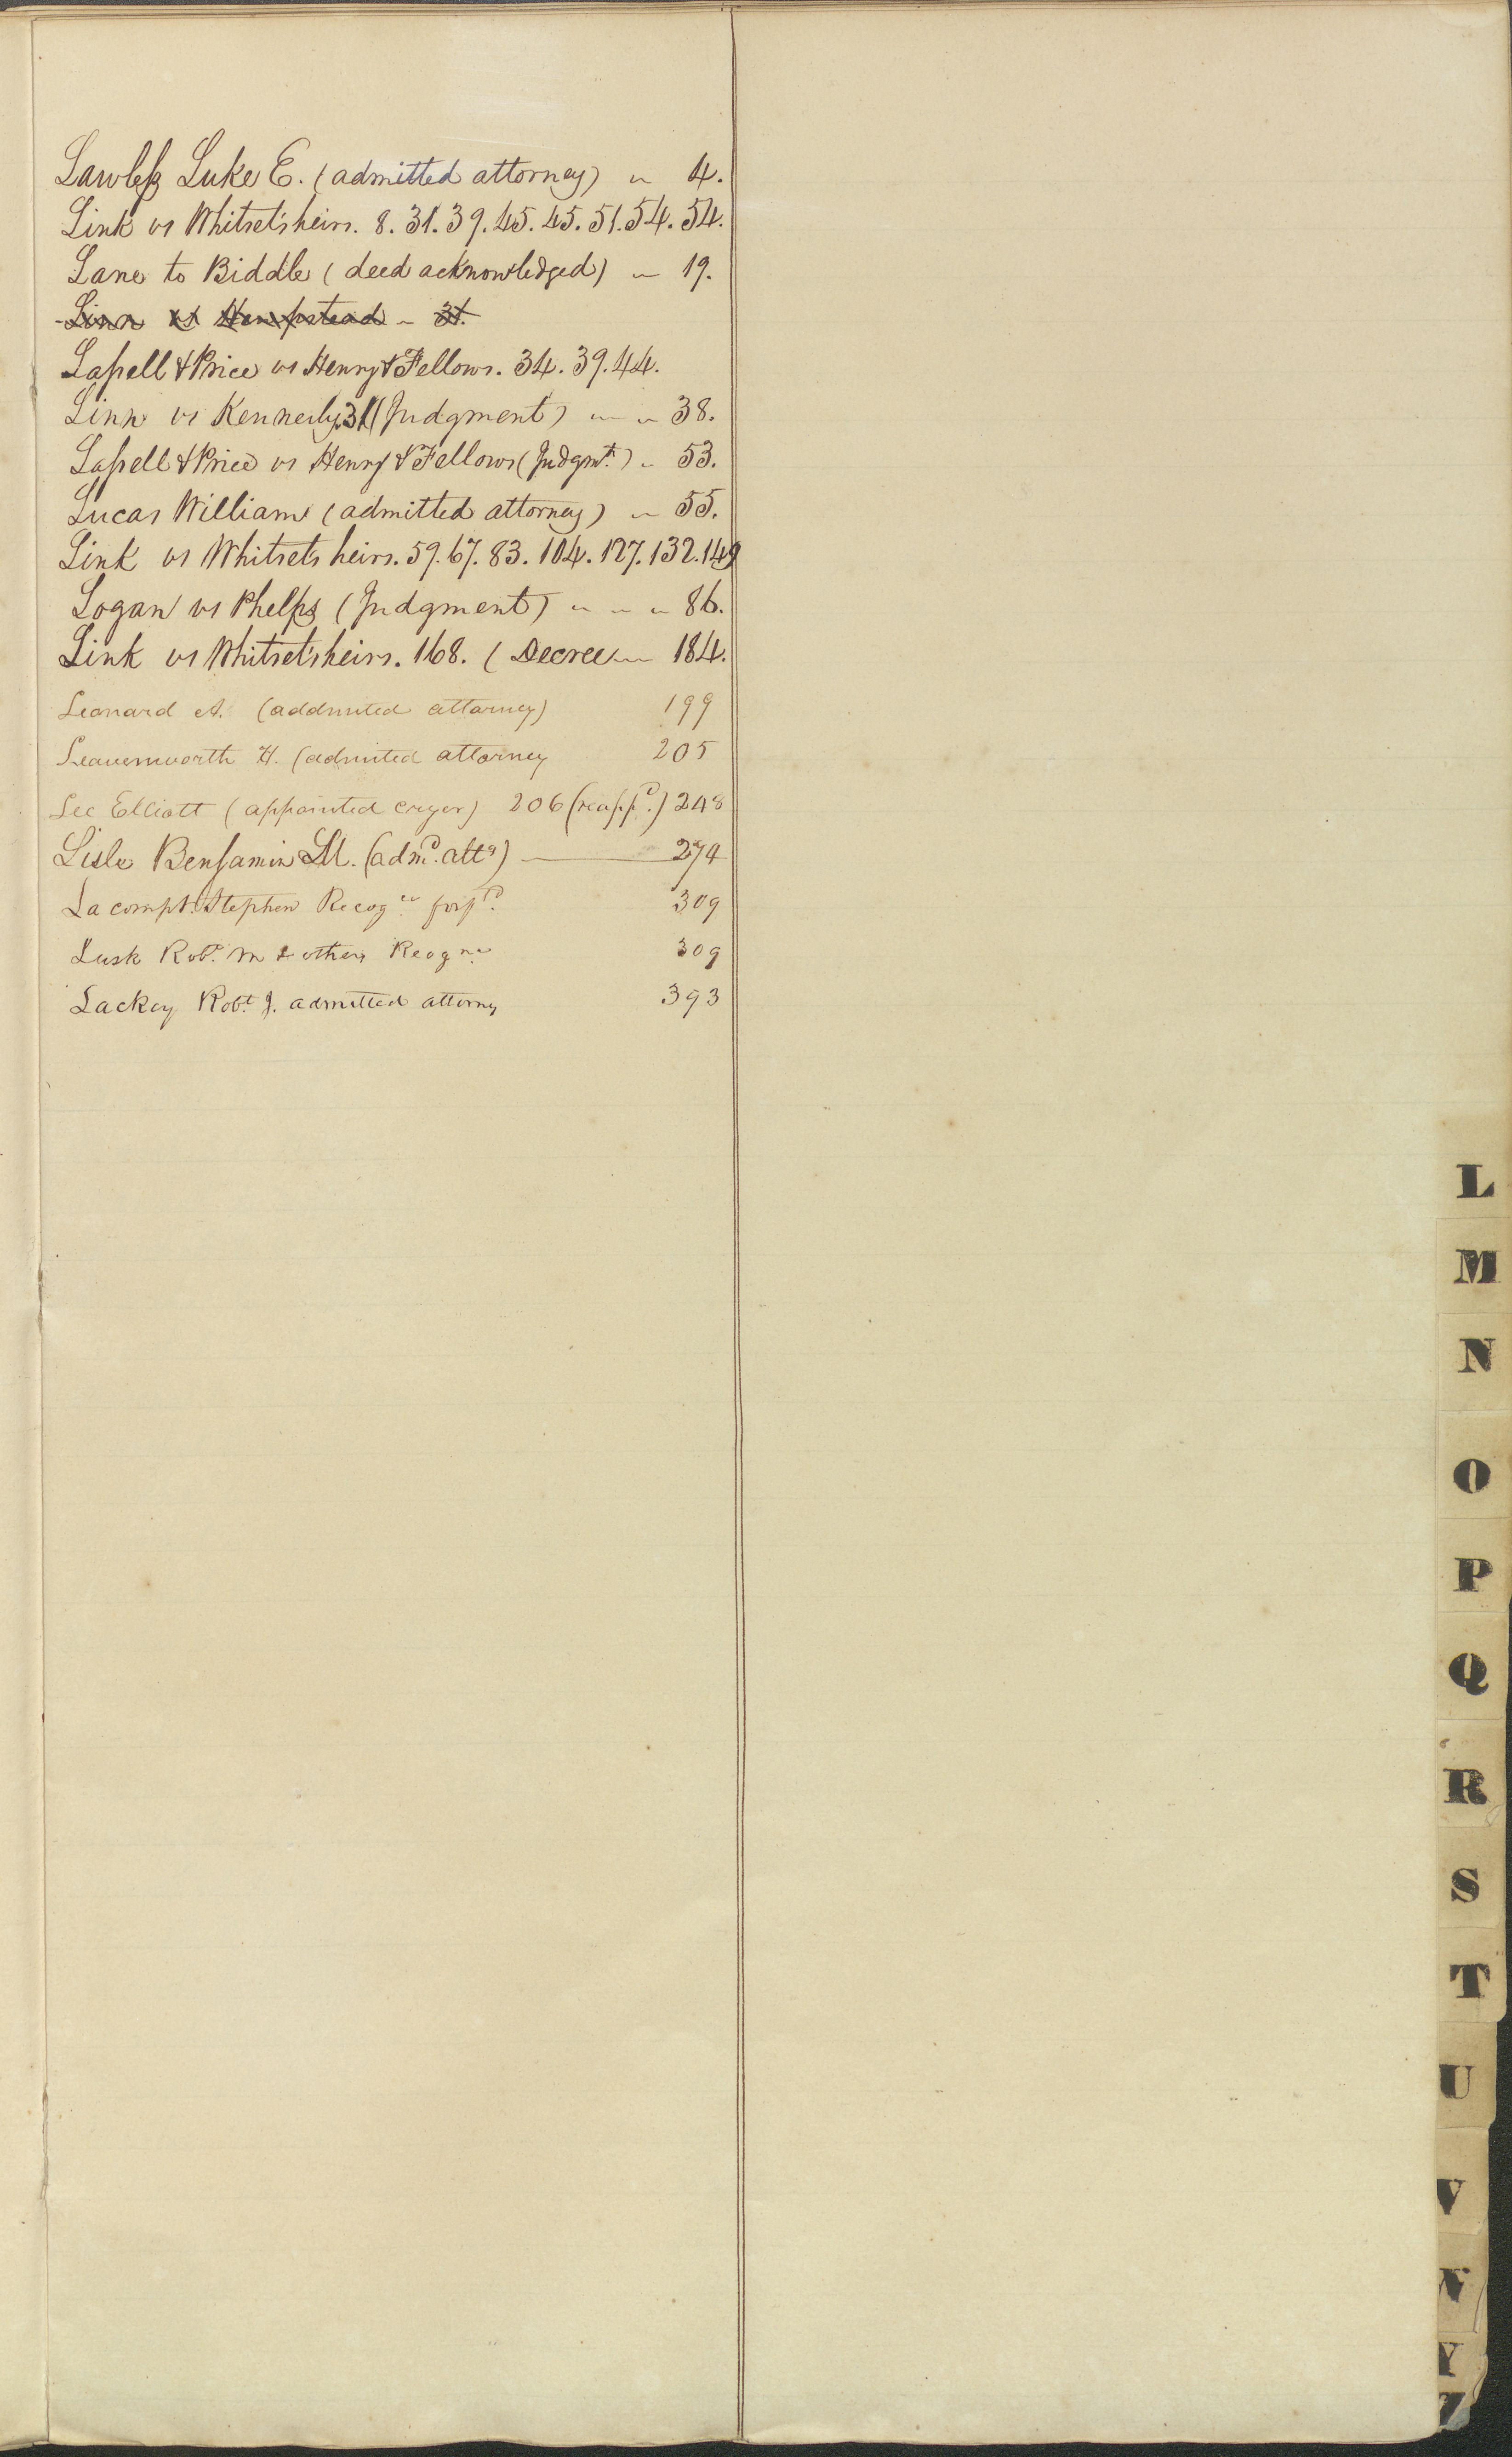 Lawless Luke E. (admitted attorney) " 4.
Link vs Whitset's heirs. 8. 31. 39. 45. 45. 51. 54. 54.
Lane to Biddle (deed acknowledged) " 19.
Linn vs Hempstead " 31.
Lassell & Price vs Henry & Fellows. 34. 39. 44.
Linn vs Kennerly. 31 (Judgment) " " 38.
Lassell & Price vs Henry & Fellows (Judgmt.) " 53.
Lucas William (admitted attorney) " 55.
Link vs Whitsets heirs. 59. 67. 83. 104. 127. 132. 149
Logan vs Phelps (Judgment) " " " 86.
Link vs Whitset's heirs. 168. (Decree " 184.
Leonard A. (addmited attorney) 199
Leavenworth H. (admited attorney 205
Lee Elliott (appointed cryer) 206 (reappd.) 248
Lisle Benjamin M. (admd. atty) 274
Lacompt Stephen Recogce forfd. 309
Lusk Robt. M & others Reogne 309
Lackey Robt. J. admitted attorny 393
L
M
N
O
P
Q
R
S
T
U
V
W
Y
Z